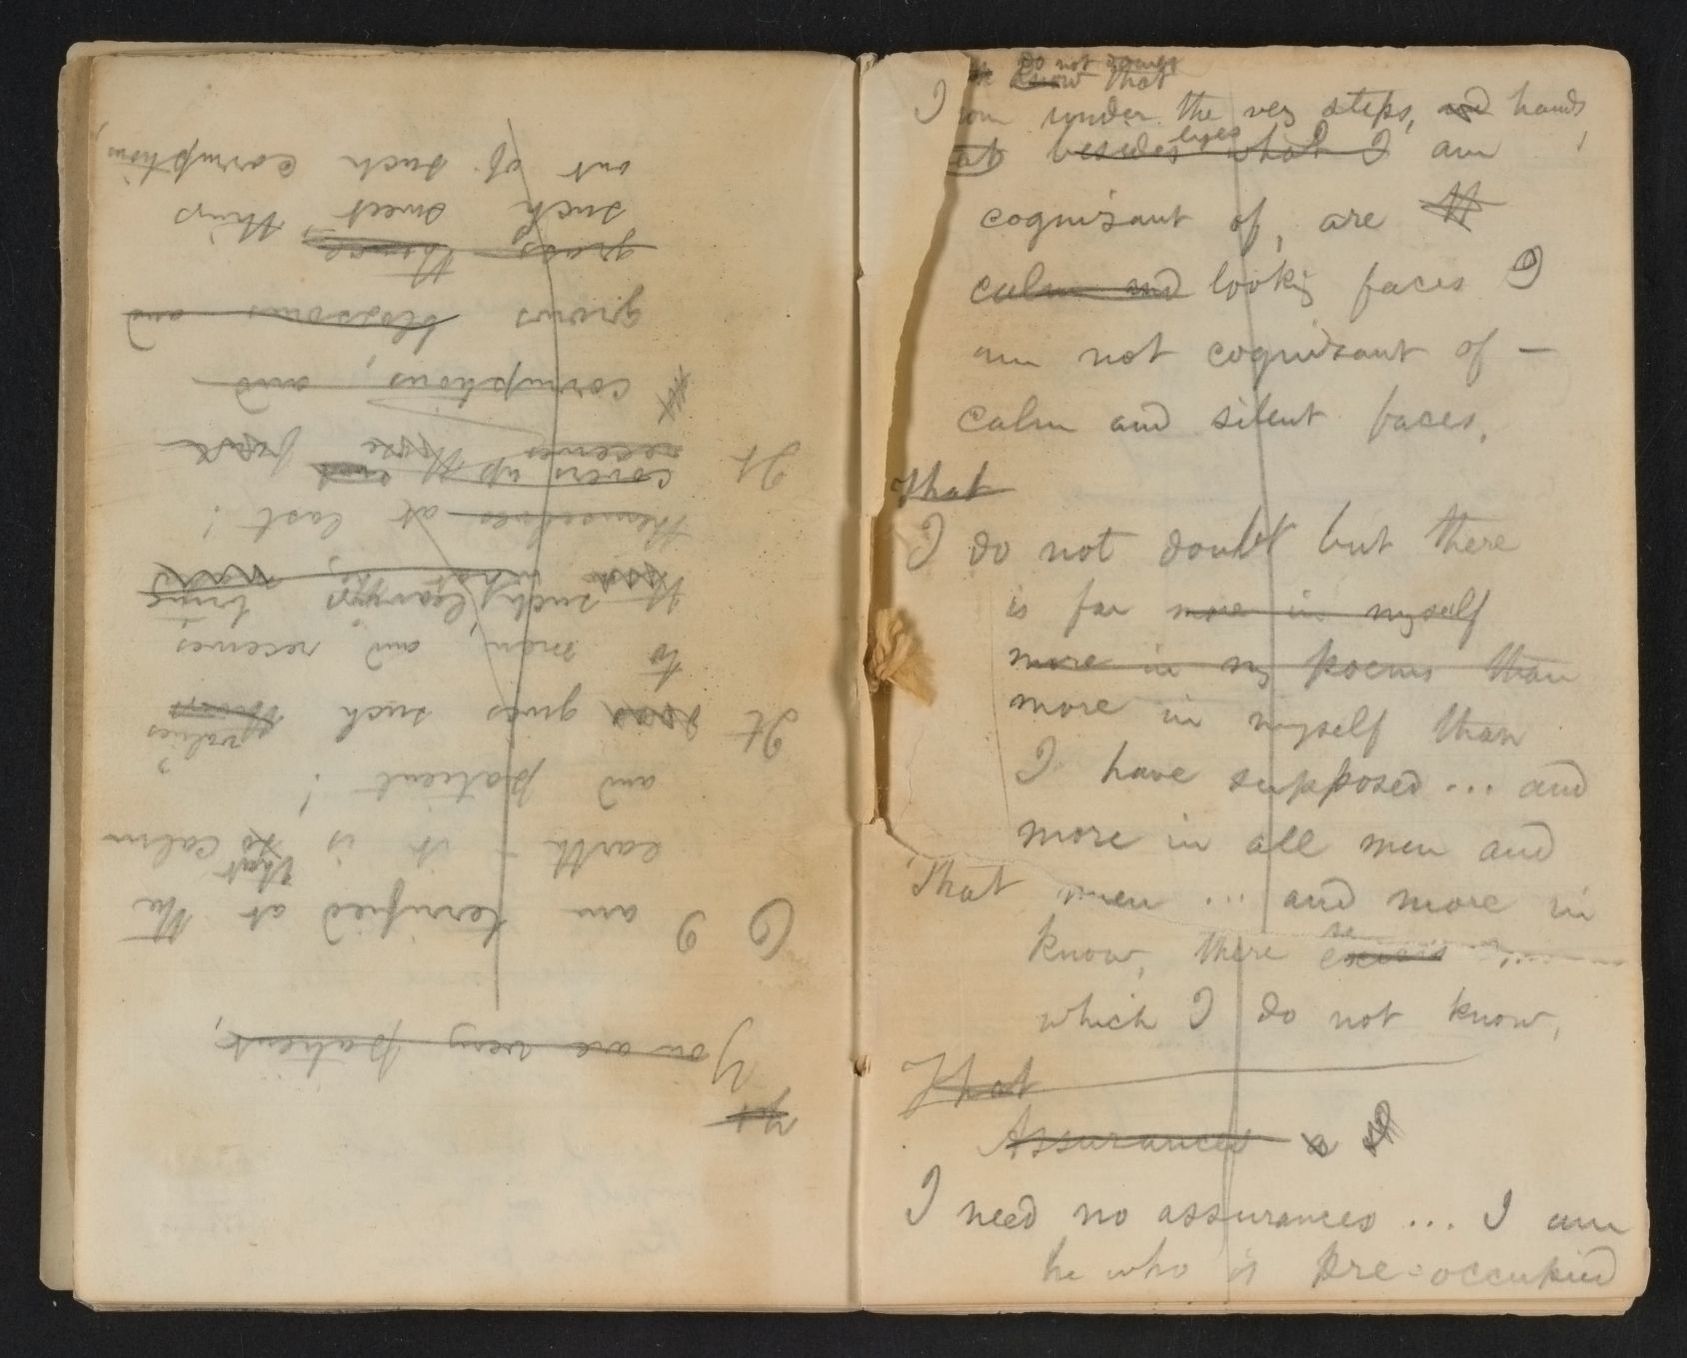 You are very patient,
O I am terrified at the
earth - it is so calm
that
and patient!
It gives such
values,
to men, and receives
such leavings
what
themselves at last!
covers up the
It receives
corruptions, and
grows blossoms and
grass,
such sweet things
out of such corruptions,
do not doubt
know that
I under the very steps, and hands,
eyes
besides what I am
cognizant of, are
calm and looking faces I
am not cognizant of —
calm and silent faces.
That
I do not doubt but there
is far more in myself
more in my poems than
more in myself than
I have supposed ... and
more in all men and
That men ... and more in
know, there exists ...
which I do not know,
That
Assurances a
I need no assurances ... I am
he who is pre-occupied